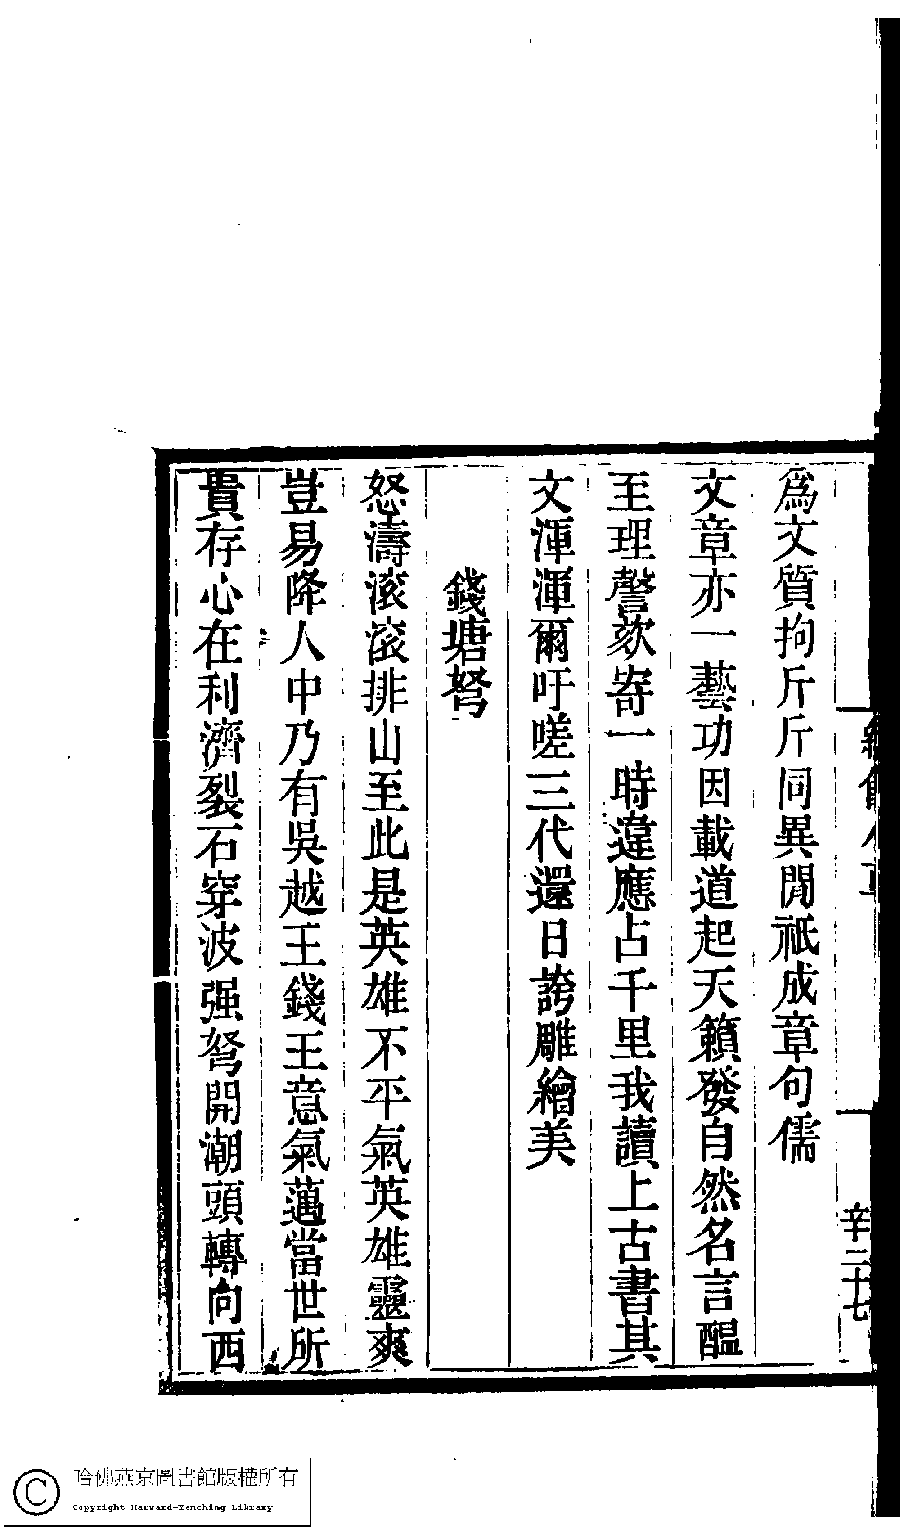 辛二十七
爲文質拘斤斤同異閒祇成章句儒
文章亦一藝功因載道起天籟發自然名言醖
至理謦欬寄一時違應占千里我讀上古書其
文渾渾爾吁嗟三代還日誇雕繪美
錢塘弩
怒濤滚滚排山至此是英雄不平氣英雄靈爽
豈易降人中乃有吳越王錢王意氣薖當世所
貴存心在利濟裂石穿波强弩開潮頭轉向西
哈佛燕京圖書館版權所有
Copyright Harvard-Yenching Library